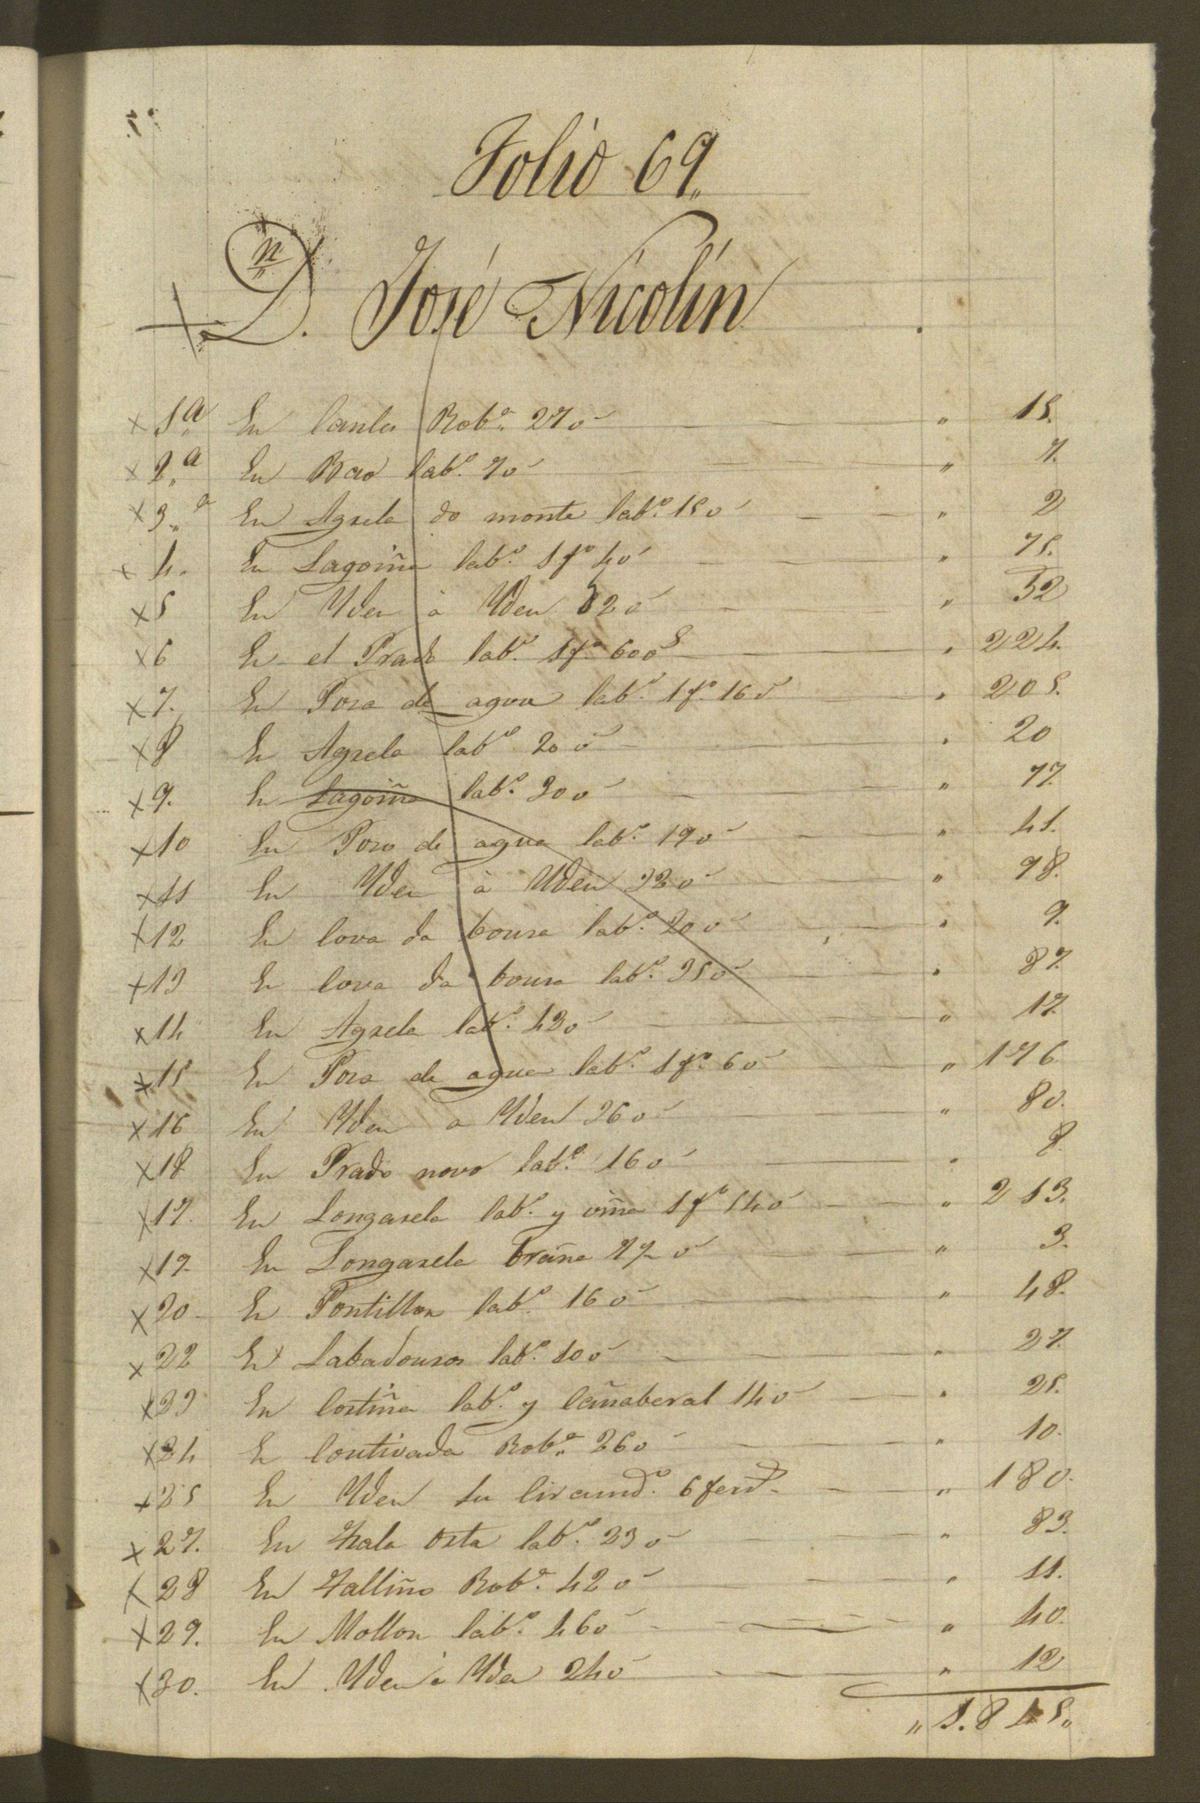 Folio 69,,
n
D. José Nicolín
× 1.ª En Canles Rob.ª 270 " 15.
× 2.ª En Bao lab.º 70 " 7.
× 3.ª En Agrela do monte lab.º 150 " 2
× 4. En Lagoiña lab.º 1 f.º 40 " 75.
× 5 En Yden à Yden 820 " 32
× 6 En el Prado lab.º 1 f.º 600 " 224.
× 7. En Poza de agua lab.º 1 f.º 160 " 205.
× 8 En Agrela lab.º 200 " 20
× 9. En Lagoiña lab.º 300 " 77.
× 10 En Pozo de agua lab.º 190 " 41.
× 11 En Yden à Yden 330 " 98.
× 12 En Cova da bousa lab.º 200 " 9.
× 13 En Cova da bousa lab.º 350 " 87.
× 14 En Agrela lab.º 430 " 17.
× 15 En Poza de agua lab.º 1 f.º 60 " 176
× 16 En Yden a Yden 360 " 80.
× 18 En Prado novo lab.º 160 " 8.
× 17. En Longarela lab.º y viña 1 f.º 140 " 213.
× 19. En Longarela braña 270 " 3.
× 20 En Pontillon lab.º 160 " 48.
× 22 En Labadouros lab.º 100 " 27.
× 23 En Cortiña lab.º y Cañaberal 140 " 25.
× 24 En Coutivada Rob.ª 260 " 10.
× 25 En Yden su 6 " 180.
× 27. En orta lab.º 230 " 83.
× 28 En Talliño Rob.ª 420 " 11.
× 29. En Mollon lab.º 460 " 40.
× 30. En Yden à Yden 240 " 12
" 1.845,,